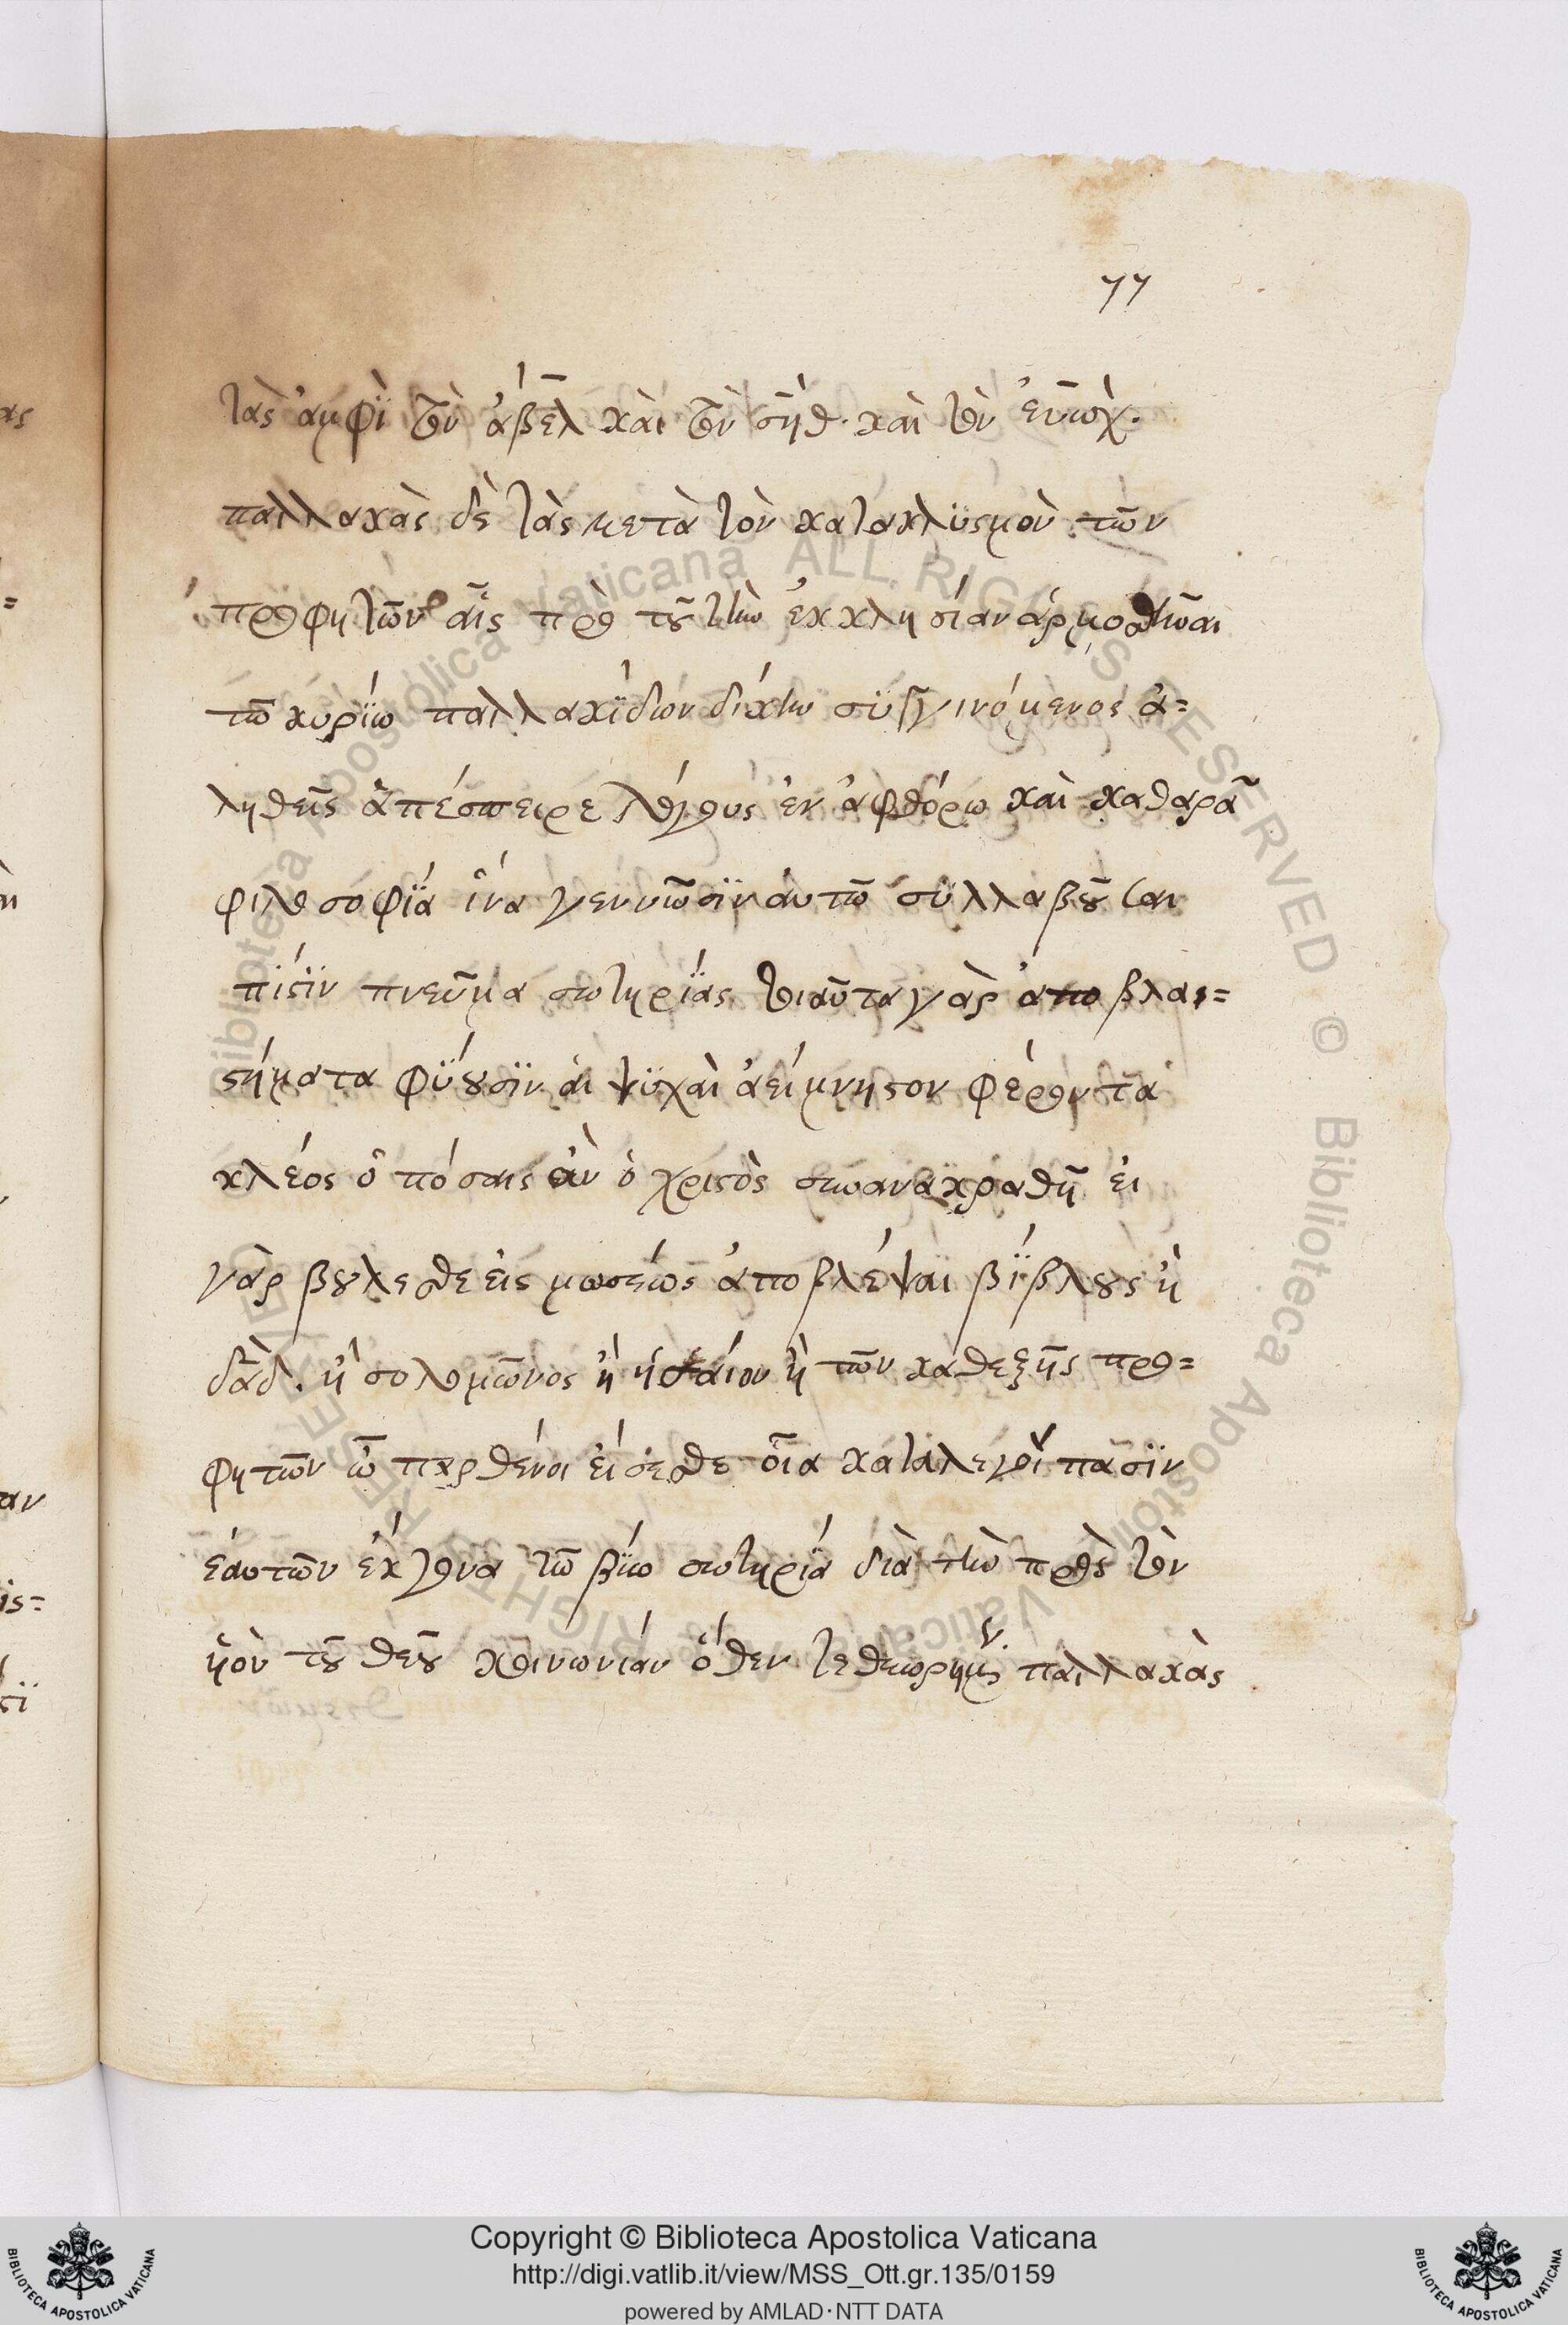 77
τὰς ἀμφὶ τὸν ἄβελ καὶ τὸν σὴθ· καὶ τὸν ἐνὼχ.
παλλακὰς δὲ τὰς μετὰ τὸν κατακλϋσμὸν τῶν
προφητῶν αἷς πρὸ τοῦ τὴν ἐκκλησίαν ἁρμοσθῆναι
τῶ κυρίω παλλακΐδων δίκην σϋγγινόμενος ἀ=
ληθεῖς ἀπέσπειρε λόγους ἐν ἀφθόρω καὶ καθαρᾶ
φιλοσοφΐα ἵνα γεννῶσϊν ἀυτῶ συλλαβοῦσαι
πίϛϊν πνεῦμα σωτηρΐας τοιαῦτα γὰρ ἀποβλας=
ϛήματα φΰουσϊν ἁι ψϋχαὶ ἀείμνηϛον φέροντα
κλέος ὁπόσαις ἀν ὁ χριϛὸς συνανακραθῆ ἐι
γὰρ βούλεσθε ἐις μωσέως ἀποβλέψαϊ βΐβλους ἢ
δᾱδ. ἢ σολομῶνος ἢ ἡσαίου ἢ τῶν καθεξῆς προ=
φητῶν ὦ παρθένοι ἐίσεσθε οἷα καταλελοίπασϊν
ἑαυτῶν ἔκγονα τῶ βΐω σωτηρΐα διὰ τὴν πρὸς τὸν
ὑϊὸν τοῦ θεοῦ κοινωνίαν ὅθεν τεθεωρημν. παλλακὰς
Copyright © Biblioteca Apostolica Vaticana
http://digi.vatlib.it/view/MSS_Ott.gr.135/0159
powered by AMLAD·NTT DATA